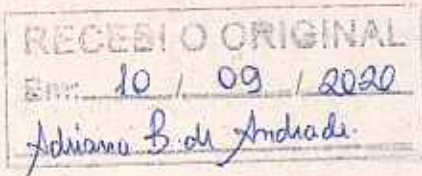 RECEBI O ORIGINAL
Em: 10 / 09 / 2020
Adriana B. de Andrade.